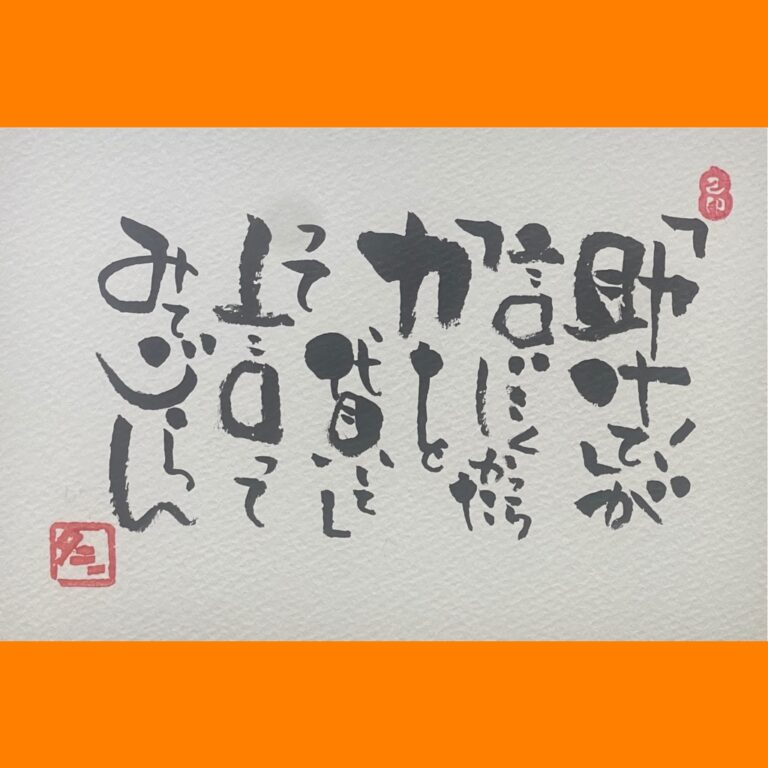 「助けて」が
言いにくかったら
「力を
貸して」
って
言って
みてごらん